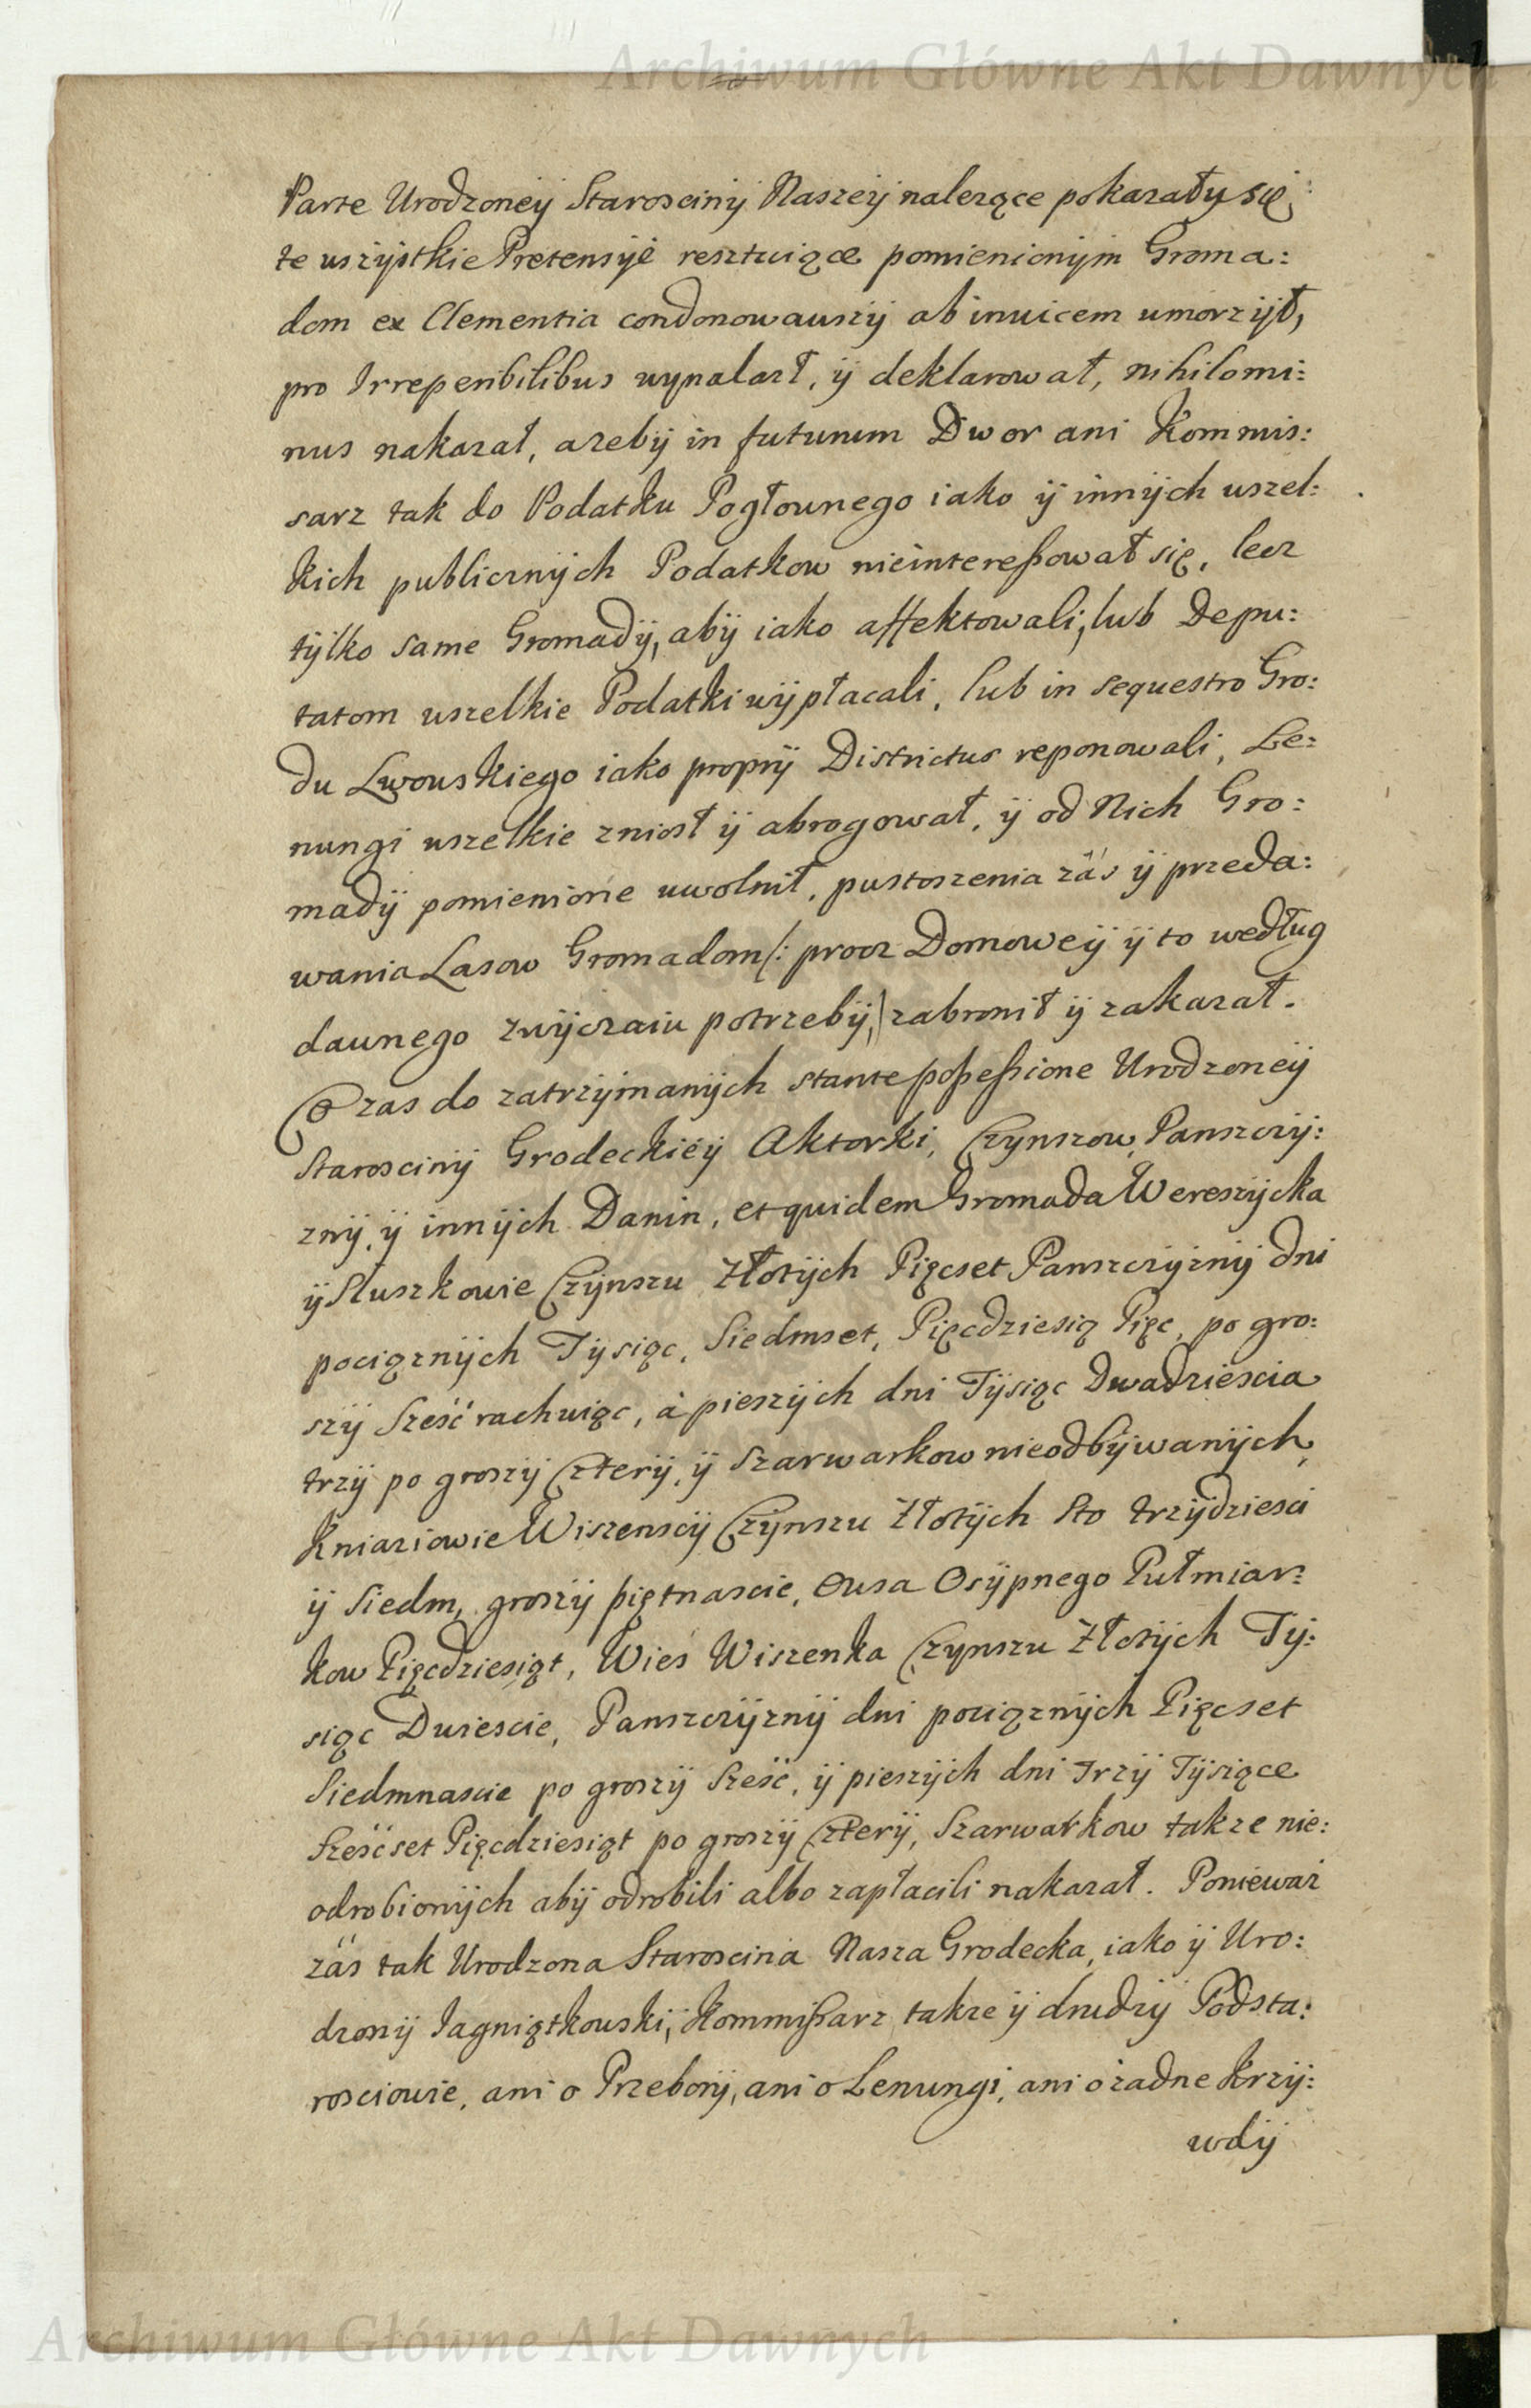 Archiwum Główne Akt Dawnych
Parte Urodzoneÿ Starosciny Naszeÿ należące pokazały się
te wszÿstkie Pretensÿe resztuiące pomienionÿm Groma:
dom ex Clementia condonowawszÿ ab invicem umorzÿł,
pro Irreperibilibus wynalazł, ÿ deklarował, nihilomi:
nus nakazał, azebÿ in futurum Dwor ani Kommis:
sarz tak do Podatku Pogłownego iako ÿ innÿch wszel:
kich publicznÿch Podatkow nieinteressował się, lecz
tÿlko same Gromadÿ, abÿ iako affektowali, lub Depu:
tatom wszelkie Podatki wÿpłacali, lub in sequestro Gro:
du Lwowskiego iako proprÿ Districtus reponowali, Le:
nungi wszelkie zniosł ÿ abrogował, ÿ od Nich Gro:
madÿ pomienione uwolnił, pustoszenia zas ÿ przeda:
wania Lasow Gromadom /: procz Domoweÿ ÿ to według
dawnego zwÿczaiu potrzebÿ,/ zabronił ÿ zakazał.
Co zas do zatrzÿmanÿch stante possessione Urodzoneÿ
Starosciny Grodeckieÿ Aktorki, Czynszow, Panszczÿ:
znÿ, ÿ innÿch Danin, et quidem Gromada Wereszÿcka
ÿ Sluszkowie Czÿnszu Złotÿch Pięcset Panszczÿznÿ dni
pociąznÿch Tÿsiąc, Siedmset, Pięcdziesią Pięc, po gro:
szÿ Sześć rachuiąc, à pieszÿch dni Tÿsiąc Dwadziescia
trzÿ po groszÿ Czterÿ, ÿ Szarwarkow nieodbÿwanÿch,
Kniaziowie Wiszenscÿ Czÿnszu Złotÿch Sto trzÿdziesci
ÿ Siedm, groszÿ piętnascie, Owsa Osÿpnego Pułmiar:
kow Pięcdziesiąt, Wies Wiszenka Czynszu Złotÿch Tÿ:
siąc Dwiescie, Panszczÿznÿ dni pociąznÿch Pięcset
Siedmnascie po groszÿ Sześć, ÿ pieszÿch dni Trzÿ Tÿsiące
Sześćset Pięcdziesiąt po groszÿ Czterÿ, Szarwarkow takze nie:
odrobionÿch abÿ odrobili albo zapłacili nakazał. Poniewaz
zas tak Urodzona Staroscina Nasza Grodecka, iako ÿ Uro:
dzonÿ Jagniątkowski, Kommissarz, takze ÿ drudzÿ Podsta:
rosciowie, ani o Przeborÿ, ani o Lenungi, ani o żadne Krzÿ:
wdÿ
Archiwum Główne Akt Dawnych